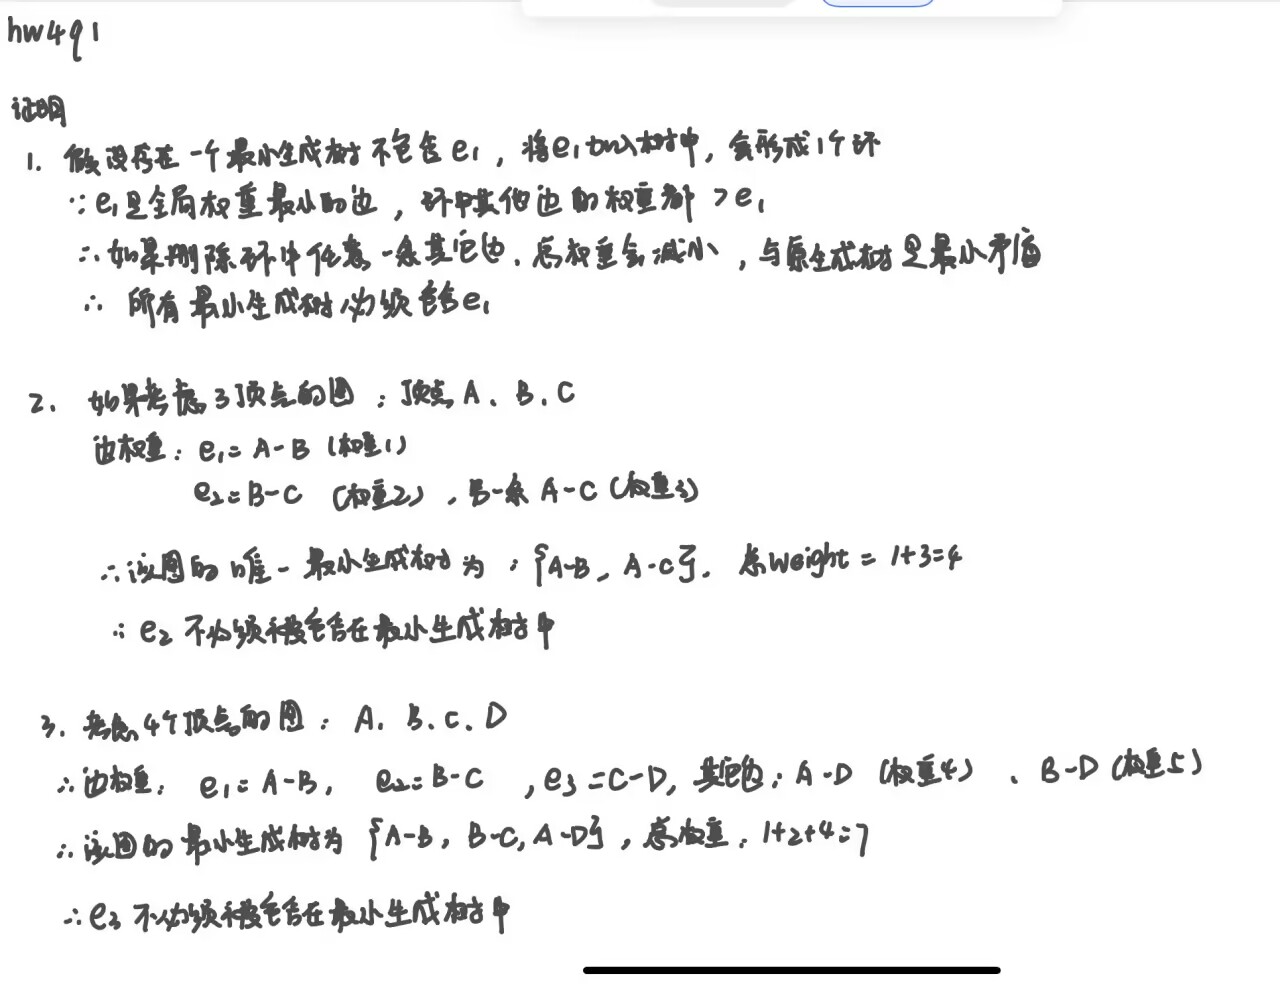 hw4q1
证明
1. 假设存在一个最小生成树不包含e₁，将e₁加入树中，会形成1个环
∵e₁是全局权重最小的边，环中其他边的权重都>e₁
∴如果删除环中任意一条其它边，总权重会减小，与原生成树是最小矛盾
∴ 所有最小生成树必须包含e₁
2. 如果考虑3顶点的图：顶点A、B、C
边权重：e₁=A-B（权重1）
e₂=B-C（权重2），另一条A-C（权重3）
∴该图的唯一最小生成树为：{A-B, A-C}，总weight=1+3=4
∴e₂不必须被包含在最小生成树中
3. 考虑4个顶点的图：A、B、C、D
∴边权重：e₁=A-B, e₂=B-C, e₃=C-D, 其它边：A-D（权重4）、B-D（权重5）
∴该图的最小生成树为{A-B, B-C, A-D}，总权重：1+2+4=7
∴e₃不必须被包含在最小生成树中